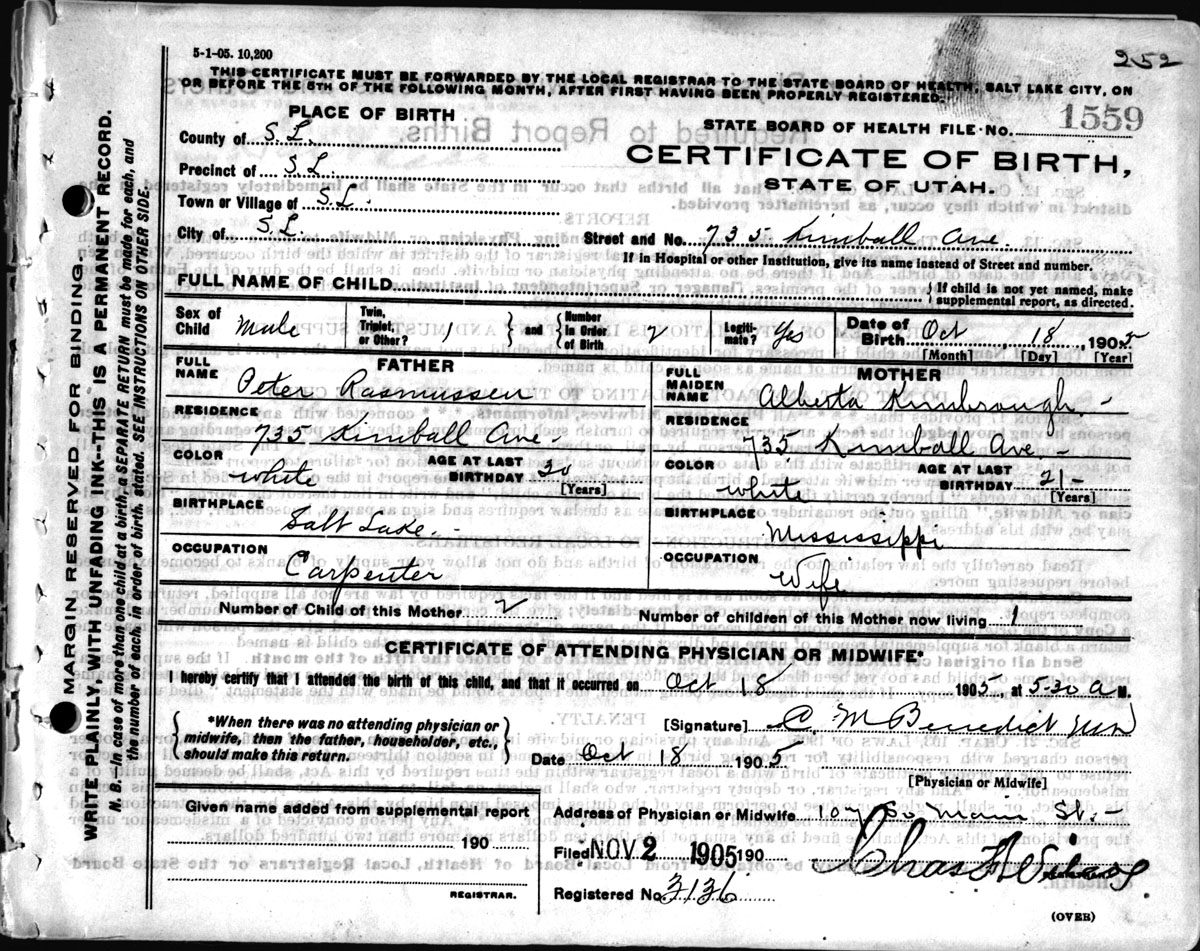 5-1-05. 10,200
252
THIS CERTIFICATE MUST BE FORWARDED BY THE LOCAL REGISTRAR TO THE STATE BOARD OF HEALTH, SALT LAKE CITY, ON
OR BEFORE THE 5TH OF THE FOLLOWING MONTH, AFTER FIRST HAVING BEEN PROPERLY REGISTERED.
PLACE OF BIRTH
County of S.L.
Precinct of S.L.
Town or Village of S.L.
City of S.L.
STATE BOARD OF HEALTH FILE NO. 1559
CERTIFICATE OF BIRTH,
STATE OF UTAH.
Street and No. 735 Kimball Ave.
If in Hospital or other Institution, give its name instead of Street and number.
FULL NAME OF CHILD
{ If child is not yet named, make
supplemental report, as directed.
Sex of Child Male
Twin, Triplet, or Other? 1 } and { Number in Order of Birth 2
Legiti-mate? Yes
Date of Birth Oct 18, 1905
[Month] [Day] [Year]
FATHER
FULL NAME Peter Rasmussen
RESIDENCE
735 Kimball Ave -
COLOR white
AGE AT LAST BIRTHDAY 20
[Years]
BIRTHPLACE
Salt Lake. -
OCCUPATION
Carpenter
MOTHER
FULL MAIDEN NAME Alberta Kimbrough. -
RESIDENCE
735 Kimball Ave. -
COLOR white
AGE AT LAST BIRTHDAY 21 -
[Years]
BIRTHPLACE
Mississippi
OCCUPATION
Wife
Number of Child of this Mother 2
Number of children of this Mother now living 1
CERTIFICATE OF ATTENDING PHYSICIAN OR MIDWIFE*
I hereby certify that I attended the birth of this child, and that it occurred on Oct 18 1905, at 5-30 a M.
{ *When there was no attending physician or
midwife, then the father, householder, etc.,
should make this return. }
[Signature] C. M Benedict MD
Date Oct 18 1905
[Physician or Midwife]
Given name added from supplemental report
190
REGISTRAR.
Address of Physician or Midwife 107 So Main St. -
Filed NOV 2 1905 190
Chas
Registered No 3136
(OVER)
MARGIN RESERVED FOR BINDING.
WRITE PLAINLY WITH UNFADING INK--THIS IS A PERMANENT RECORD.
N. B.--In case of more than one child at a birth, a SEPARATE RETURN must be made for each, and
the number of each, in order of birth, stated. SEE INSTRUCTIONS ON OTHER SIDE.